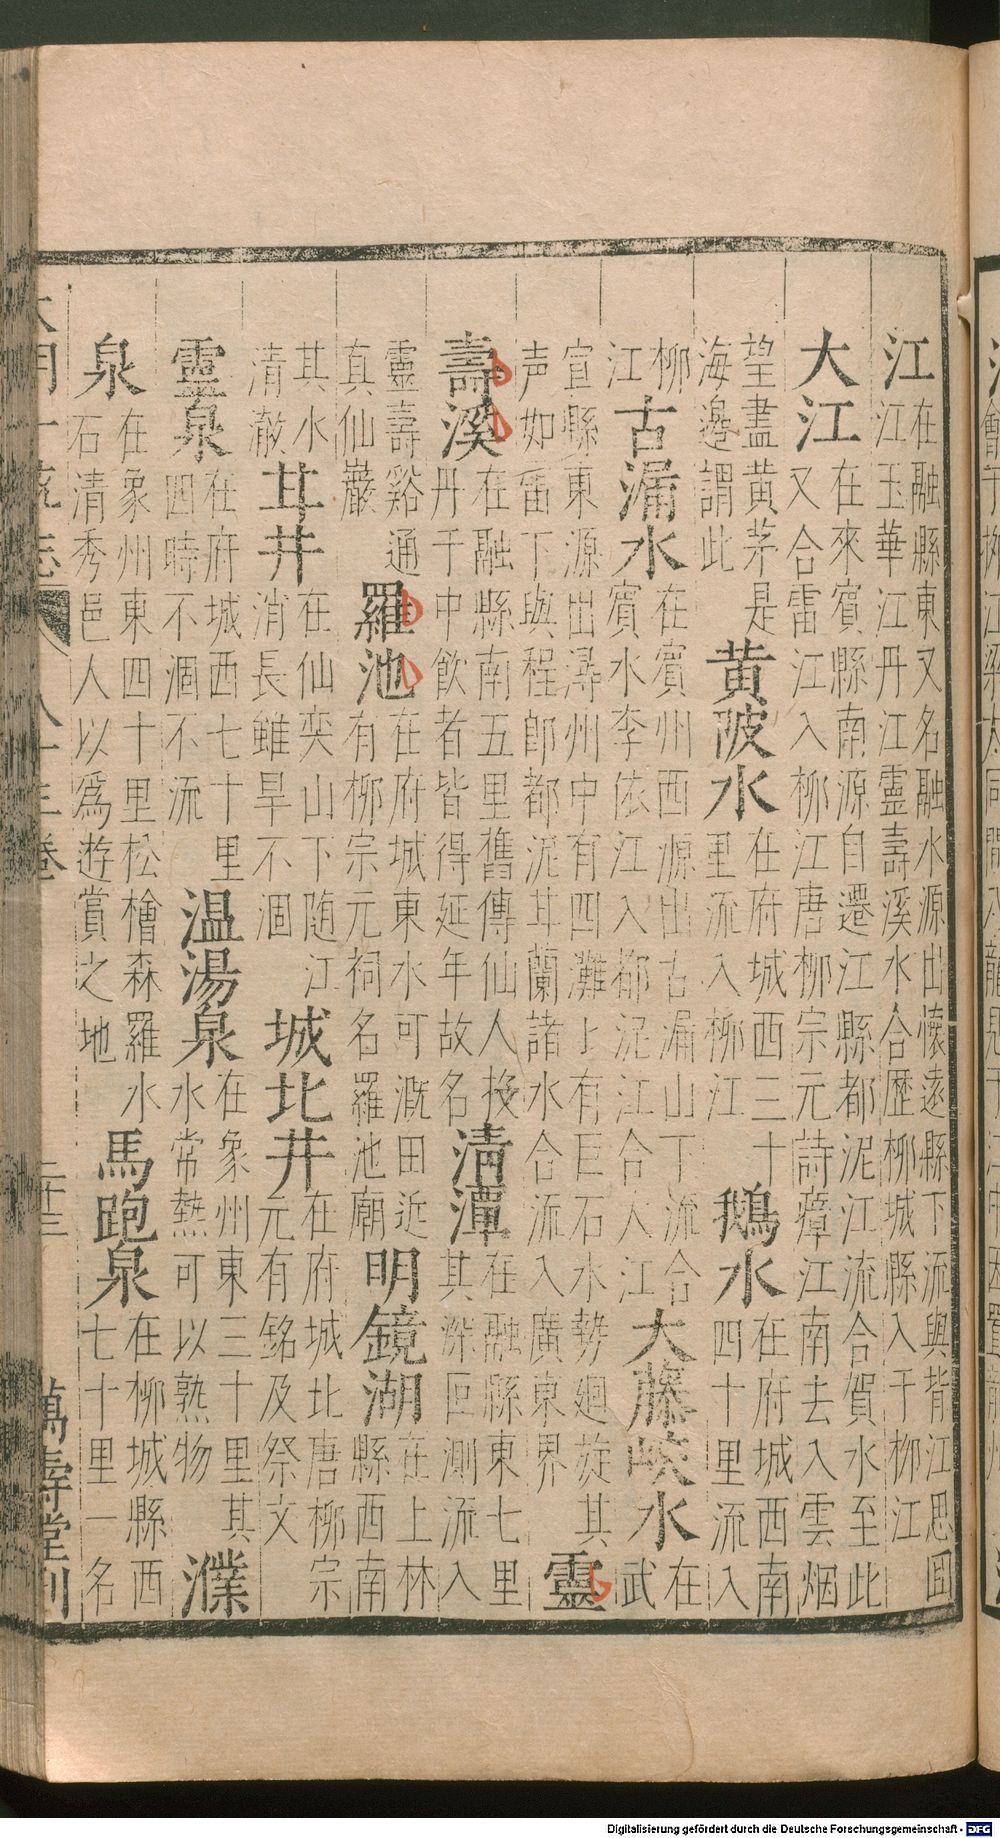 江
在融縣東又名融水源出懷遠縣下流與背江思囬
江玉華江丹江靈壽溪水合歷柳城縣入于柳江
大江
在來賓縣南源自遷江縣都泥江流合賀水至此
又合雷江入柳江唐柳宗元詩瘴江南去入雲烟
望盡黄茅是
海邉謂此
黄陂水
在府城西三十
里流入柳江
鵝水
在府城西南
四十里流入
柳
江
古漏水
在賓州西源出古漏山下流合
賓水李依江入都泥江合大江
大藤峽水
在武
宣縣東源出潯州中有四灘上有巨石水勢廻旋其
声如雷下與程郎都泥耳蘭諸水合流入廣東界
靈
壽溪
在融縣南五里舊傳仙人投
丹于中飲者皆得延年故名
清潭
在融縣東七里
其深叵測流入
靈壽谿通
真仙巖
羅池
在府城東水可溉田近
有柳宗元祠名羅池廟
明鏡湖
在上林
縣西南
其水
清澈
耳井
在仙奕山下随江
消長雖旱不涸
城北井
在府城北唐柳宗
元有銘及祭文
靈泉
在府城西七十里
四時不涸不流
温湯泉
在象州東三十里其
水常熱可以熟物
濮
泉
在象州東四十里松檜森羅水
石清秀邑人以爲遊賞之地
馬跑泉
在柳城縣西
七十里一名
大明一統志 八十三卷 二十三 萬壽堂刊
Digitalisierung gefördert durch die Deutsche Forschungsgemeinschaft - DFG